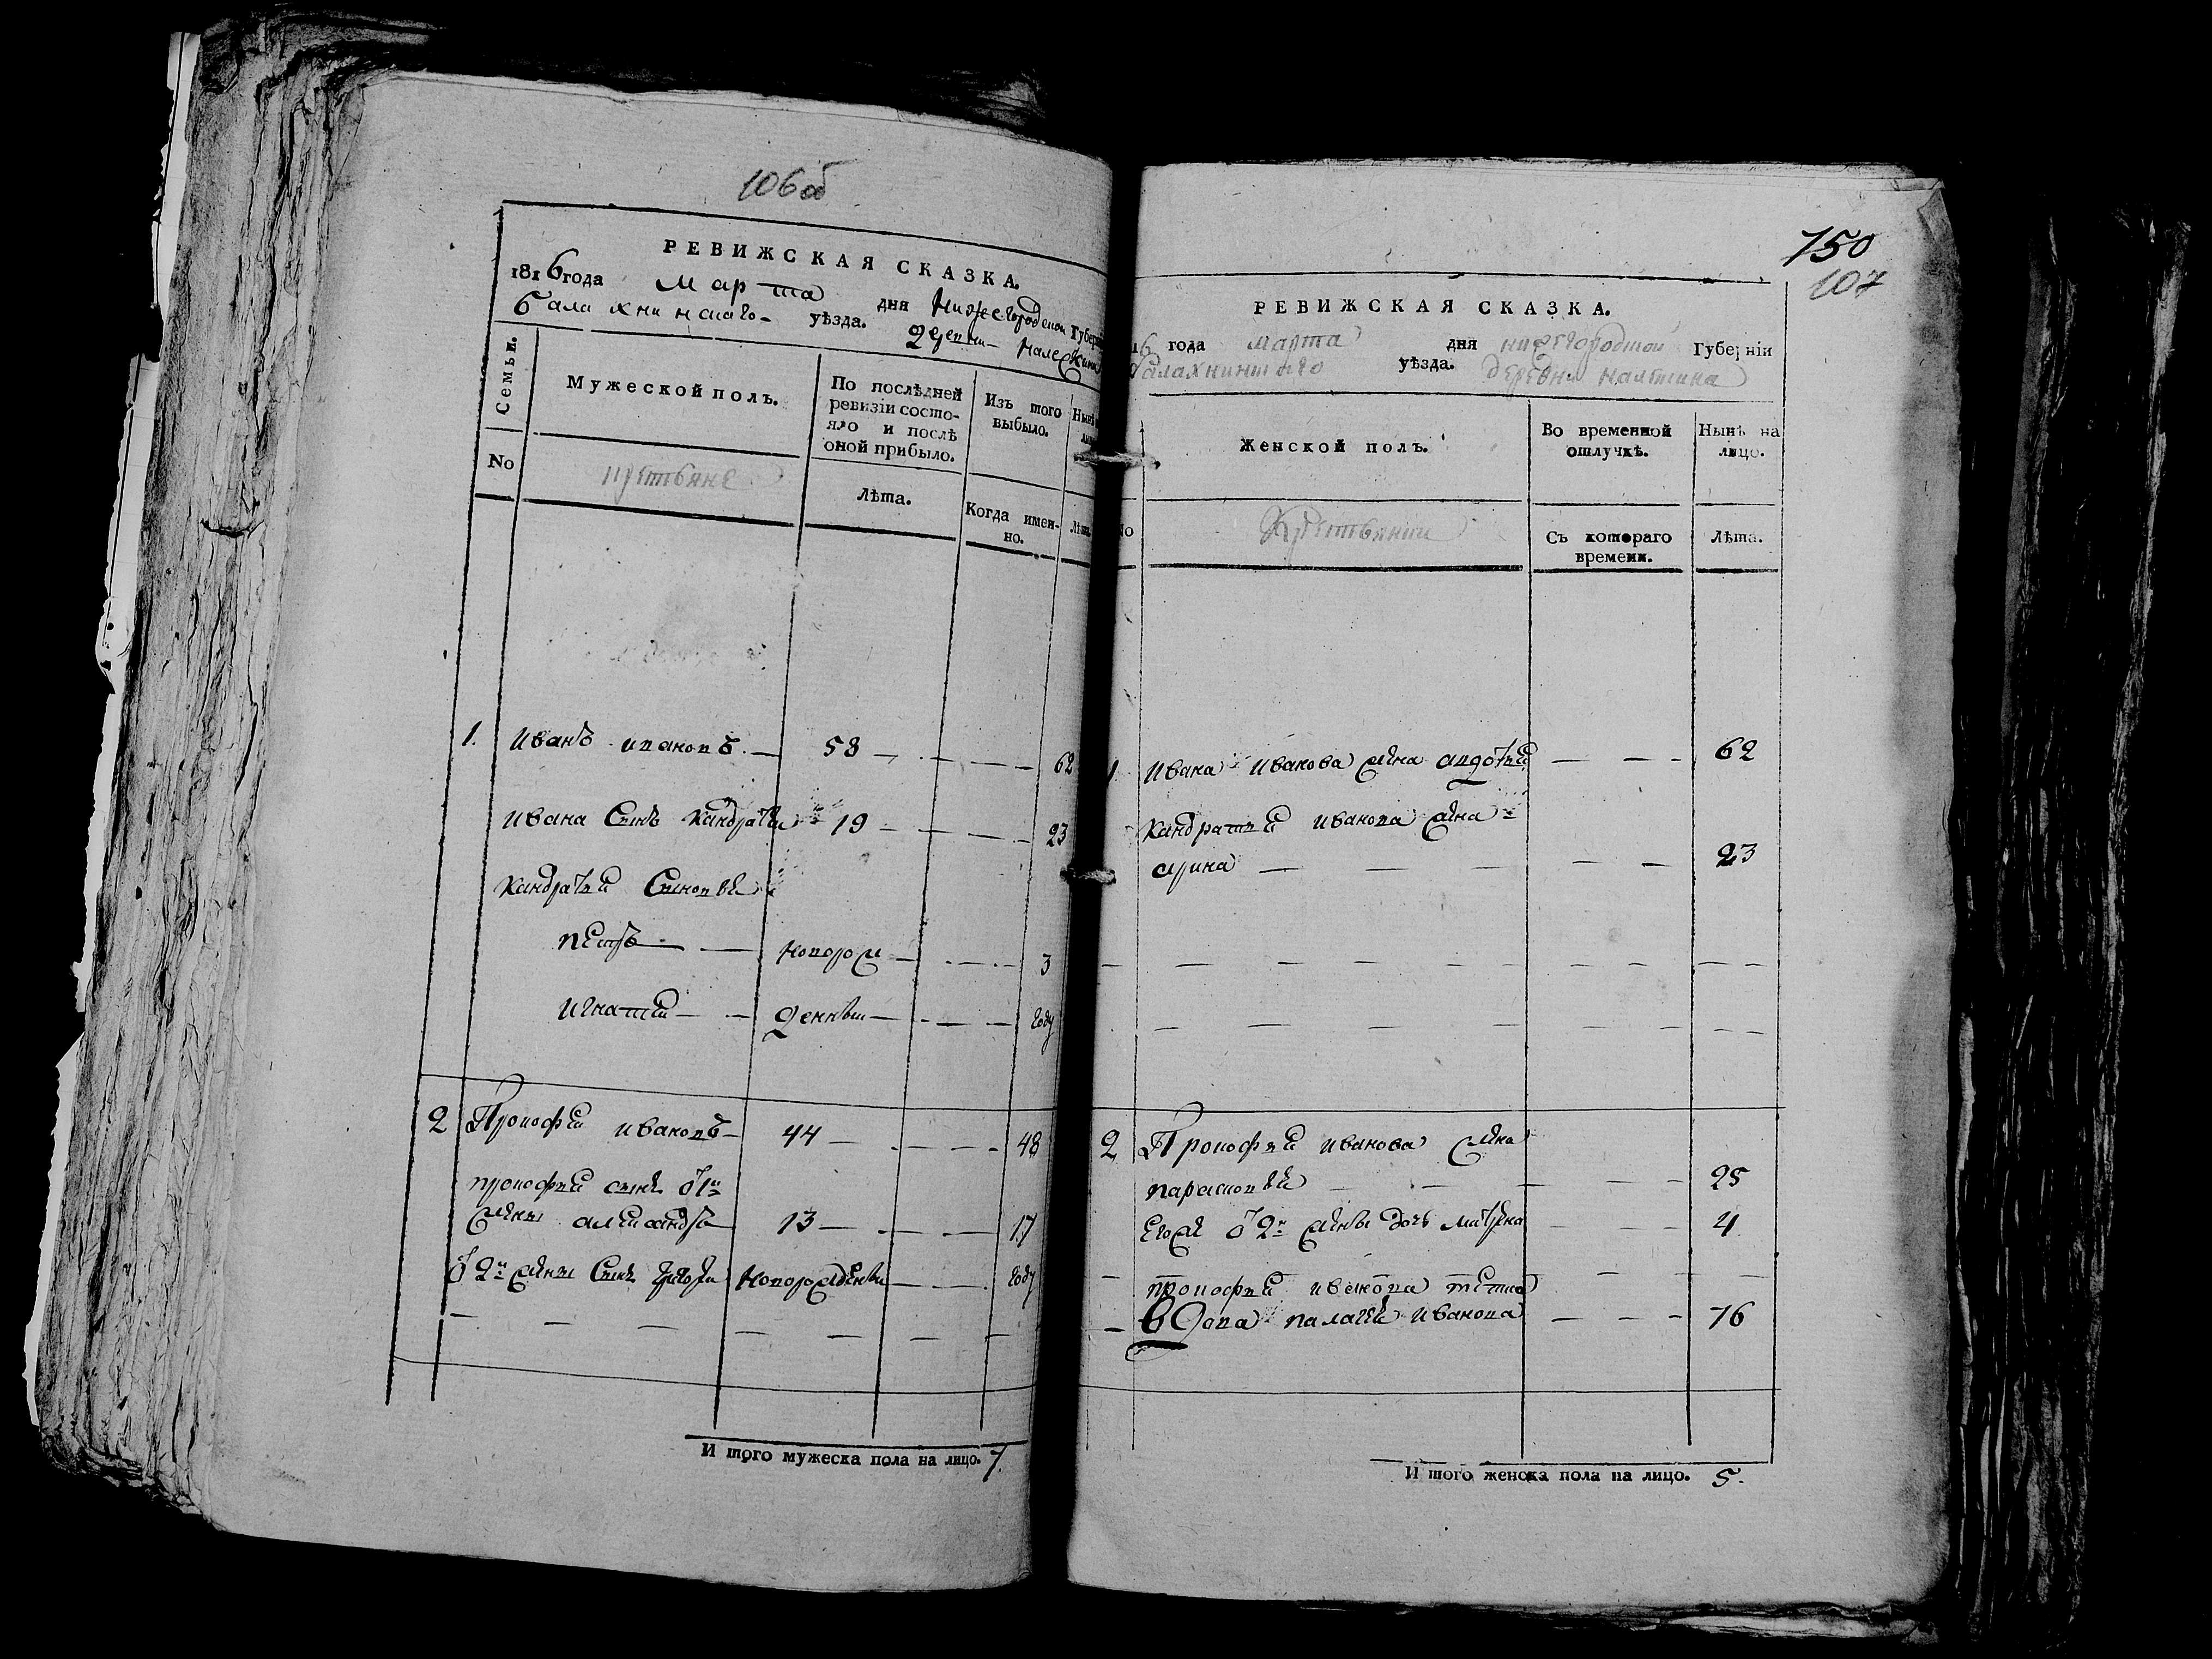 106об
РЕВИЖСКАЯ СКАЗКА.
1816 года марта дня Нижегородской Губерні
балахнинскаго уѣзда. деревни
Семьи.
Мужеской полъ.
По послѣдней ревизіи состояло и послѣ оной прибыло.
Изъ того выбыло.
Нынѣ
No
крестьяне
Лѣта.
Когда именно.
Лѣта.
1. Иванъ ивановъ 58 62
Ивана Сынъ кандратей 19 23
Кандратьи Сыновьи
петръ новорож 3
игнатей денныи году
2 Прокофеи ивановъ 44 48
прокофьи сынъ от 1й
жены александръ 13 17
от 2й жены Сынъ григореи новорожденны году
И того мужеска пола на лицо. 7.
150
107
РЕВИЖСКАЯ СКАЗКА.
16 года марта дня нижегородской Губерніи
балахнинскаго уѣзда. деревни
Женской полъ.
Во временной отлучкѣ.
Нынѣ на лицо.
No
Крестьянки
Съ котораго времени.
Лѣта.
1 Ивана Иванова жена авдотьи 62
Кандратьи иванова жена
арина 23
2 Прокофьи иванова жена
парасковьи 25
его же от 2й жены дочь матрена 4
прокофьи иванова тетка
вдова палагеи иванова 76
И того женска пола на лицо. 5.